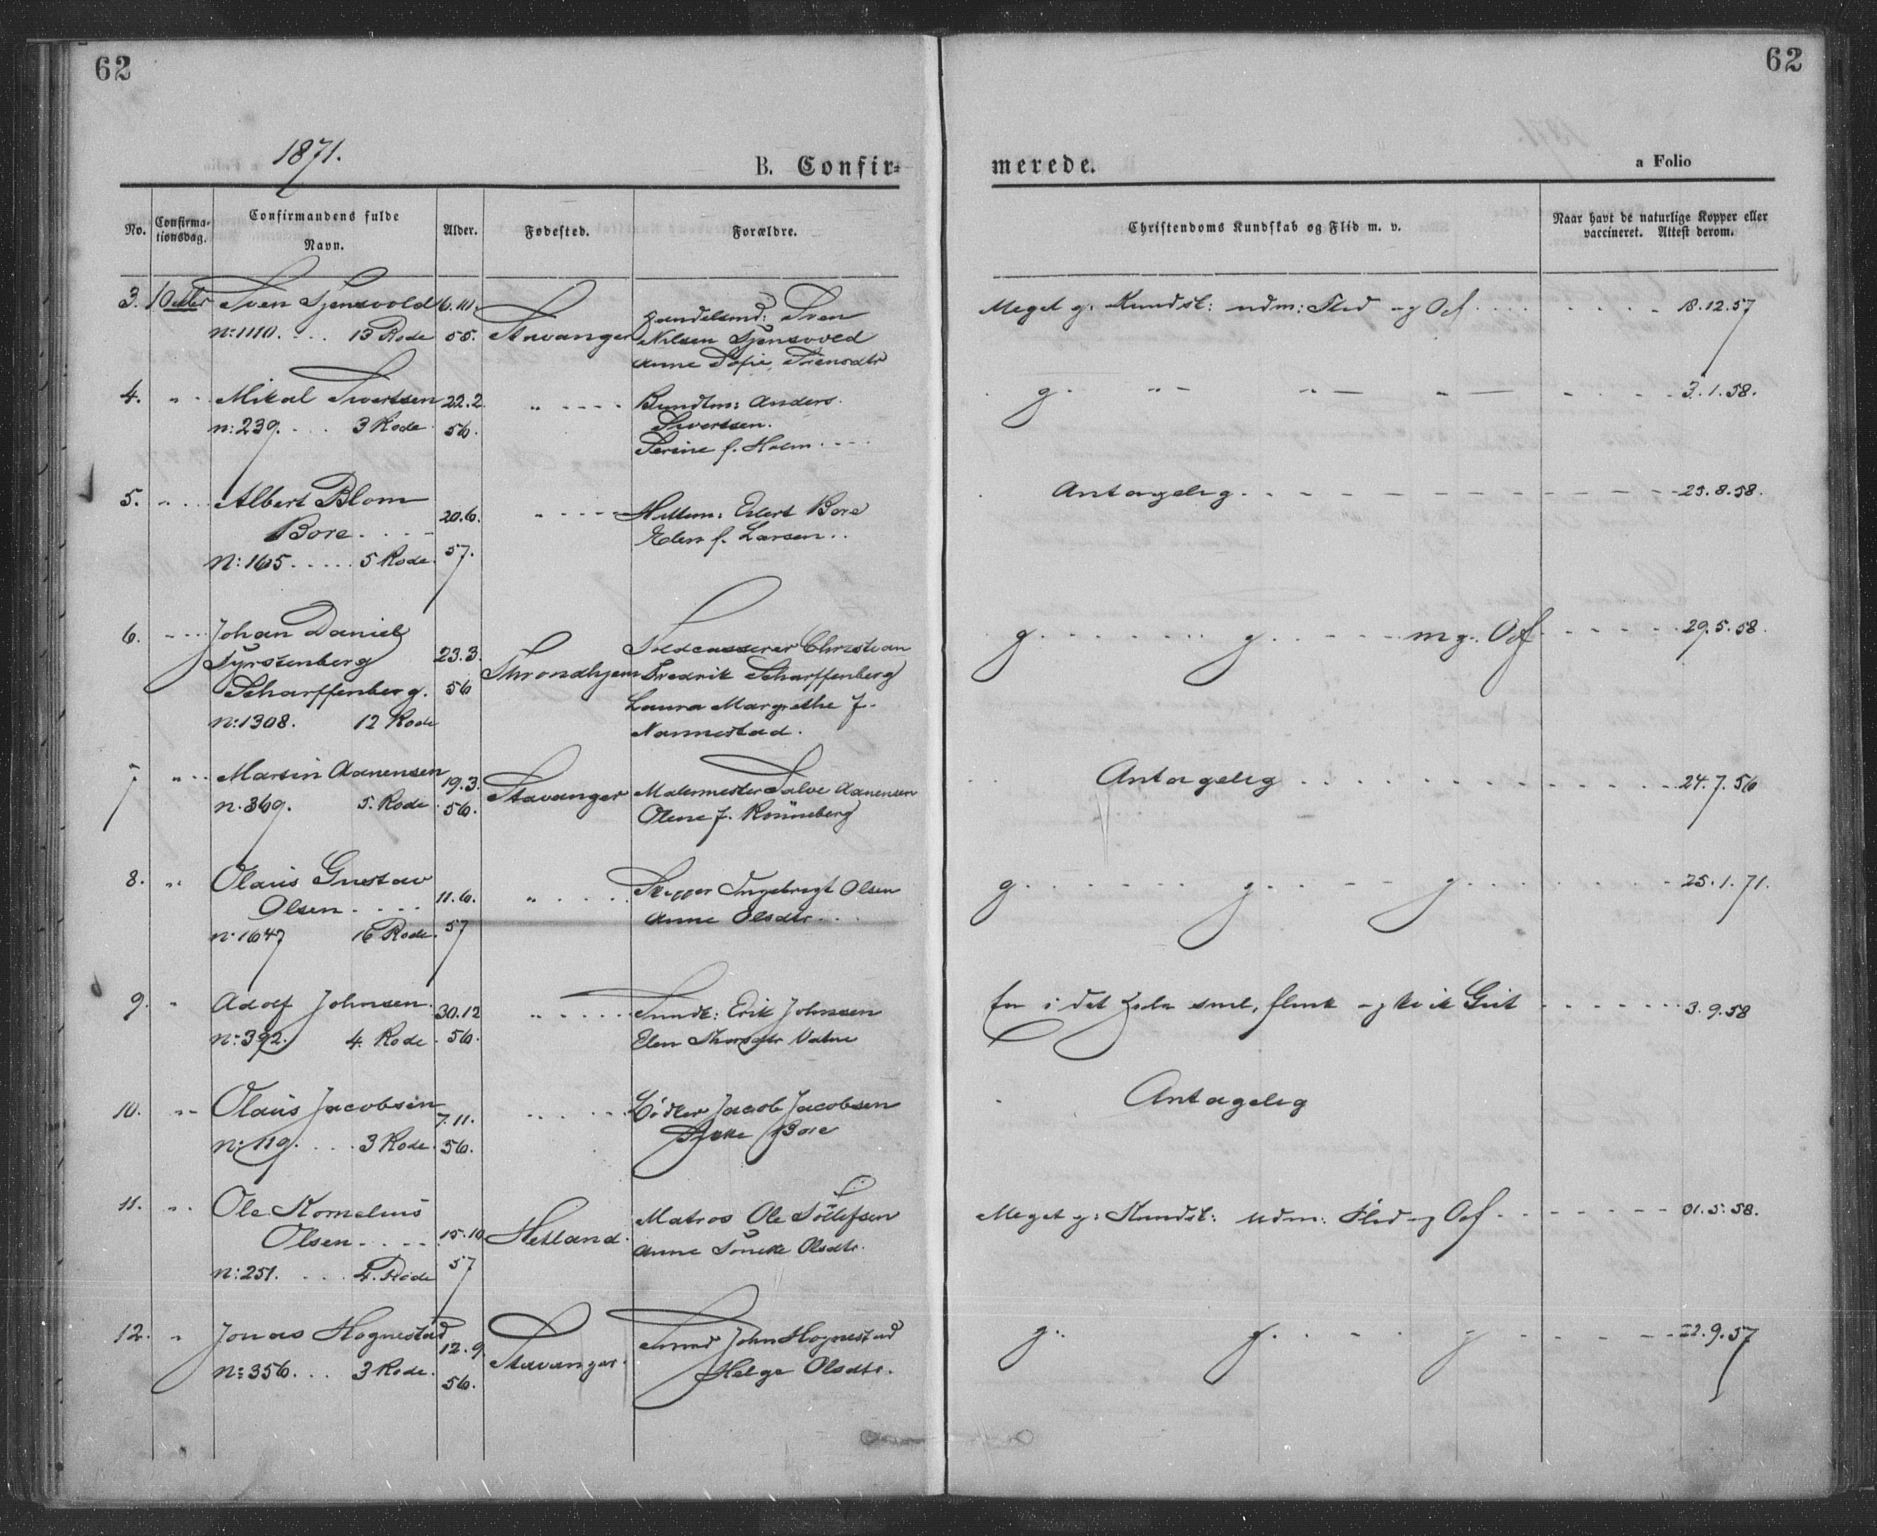 62
62
1871.
B. Confir-
merede.
a Folio
No.
Confirma-
tionsdag.
Confirmandens fulde
Navn.
Alder.
Fødested.
Forældre.
Christendoms Kundskab og Flid m. v.
Naar havt de naturlige Kopper eller
vaccineret. Attest derom.
3. 1 Octbr Sven Tjensvold 6.10. Stavanger Handelsmd: Sven Meget g: Kundsk: udm: Flid og Opf 18.12.57
No: 1110. 13 Rode 55. Nilsen Tjensvold
Anne Sofie
4. " Mikal Sivertsen 22.2. " Bundtm: Anders g. " " " 3.1.58.
n: 239. 3 Rode 56. Sivertsen.
Serine f. Holm
5. " Albert Blom 20.6. " Eilert Bore Antagelig. 25.8.58.
Bore. 57. Elen f. Larsen
N: 165. 5 Rode
6. Johan Daniel 23.3. Throndhjem Toldcasserer Christian g. g. m g. Opf 29.5.58.
Fyrstenberg 56 Fredrik Scharffenberg
Scharffenberg. Laura Margrethe f.
No: 1308. 12 Rode Nannestad.
7 " Martin Aanensen 19.3. Stavanger Malermester Salve Aanensen Antagelig 24.7.56
n. 369. 5. Rode 56. Olene f. Rönneberg
8. " Olaus Gustav 11.6. " Skipper Ingebregt Olsen g. g. g. 25.1.71.
Olsen 57 Anne Olsdtr.
No 1647 16 Rode.
9. " Adolf Johnsen. 30.12 " Erik Johnsen for i det hele snil, flink og kvik Gut 3.9.58
No: 392. 4. Rode 56. Elen Vatne
10. " Olaus Jacobsen 7.11. " Bødker Jacob Jacobsen Antagelig
N: 119. 3 Rode. 56. Bore
11. " Ole Kornelius 15.10 Hetland. Matros Ole Tollefsen Meget g: Kundsk: udm: Flid og Opf 31.5.58.
Olsen 57 Anne Olsdtr.
n: 251. 4. Rode
12. " Jonas Hognestad 12.9. Stavanger. John Hognestad g. g. g 22.9.57
No: 356. 3 Rode. 56. Helge Olsdtr.